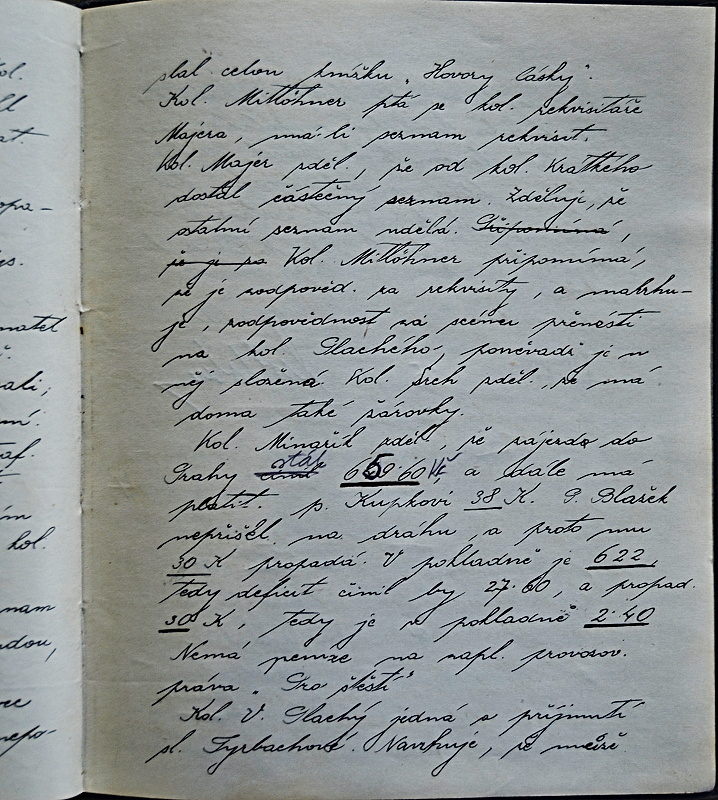 ol.
ll
at.
opa-
es.
matel
ě.
ali;
ní.
af.
t
ím
kol.
nam
dou,
ce
nepo-
slal celou knížku „Hovory lásky".
Kol. Mitlöhner ptá se kol. rekvisitáře
Majera, má-li seznam rekvisit.
Kol. Majer sděl., že od kol. Krátkého
dostal částečný seznam. Zděluje, že
ostatní seznam udělá. Připomíná,
že je za Kol. Mitlöhner připomíná,
že je zodpověd. za rekvisity, a navrhu-
je, zodpovědnost za scénu přenésti
na kol. Slachého, poněvadž je u
něj složená. Kol. Srch sděl., že má
doma také žárovky.
Kol. Minařík sděl., že zájezd do
Prahy činil stál 659·60 Kč, a dále má
platit. p. Kupkovi 38 K. P. Blažek
nepřišel na dráhu, a proto mu
30 K propadá. V pokladně je 622,
tedy deficit činil by 27·60, a propad.
30 K, tedy je v pokladně 2·40
Nemá peníze na zapl. provozov.
práva „Pro štěstí"
Kol. V. Slachý jedná o přijmutí
sl. Fyrbachové. Navrhuje, že může